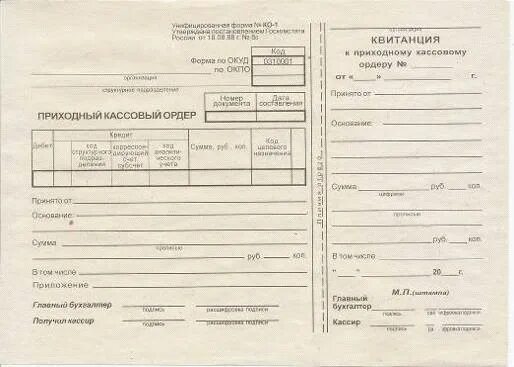 Унифицированная форма № КО-1
Утверждена постановлением Госкомстата
России от 18.08.98 г. №
Код
Форма по ОКУД 0310001
по ОКПО
организация
структурное подразделение
Номер документа
Дата составления
ПРИХОДНЫЙ КАССОВЫЙ ОРДЕР
Дебет
Кредит
код структурного подразделения
корреспондирующий счет субсчет
код аналитического учета
Сумма, руб. коп.
Код целевого назначения
Принято от
Основание:
Сумма
прописью
руб. коп.
В том числе
Приложение
Главный бухгалтер
подпись расшифровка подписи
Получил кассир
подпись расшифровка подписи
Линия отреза
организация
КВИТАНЦИЯ
к приходному кассовому
ордеру №
от «___» г.
Принято от
Основание:
Сумма руб. коп.
цифрами
прописью
руб. коп.
В том числе
"___" 20 г.
М.П. (штампа)
Главный
бухгалтер
подпись
Кассир
подпись